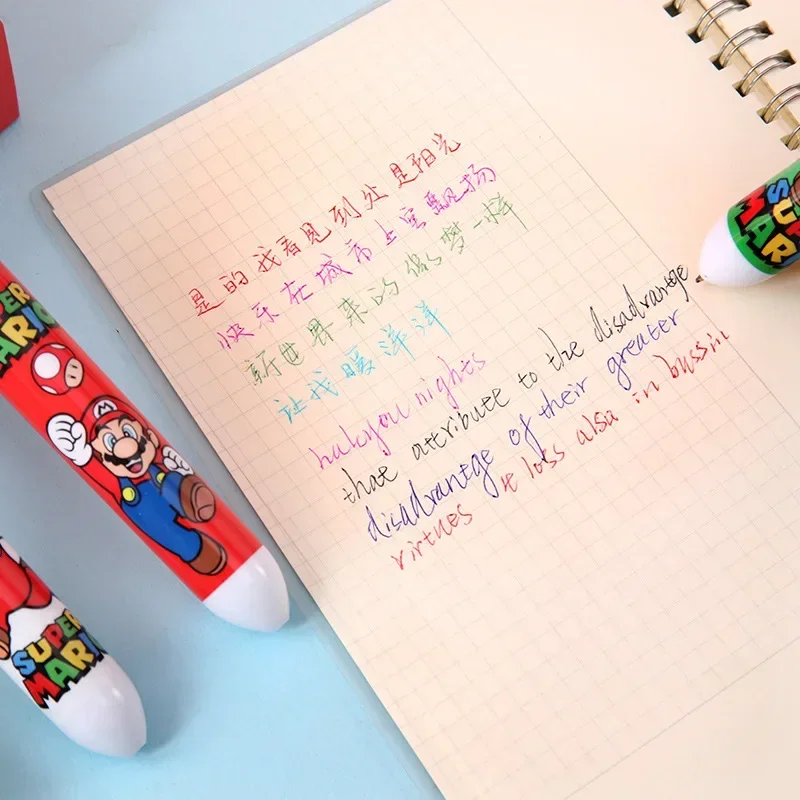 是的我看见到处是阳光
快乐在城市上空飘扬
新世界来的像梦一样
让我暖洋洋
halcyou nights
that attribute to the disadvantge
disadvantge of their greater
virtues it loss also in bussin
SUPER
MARIO
SUPER
MARIO
SUPER
MARIO